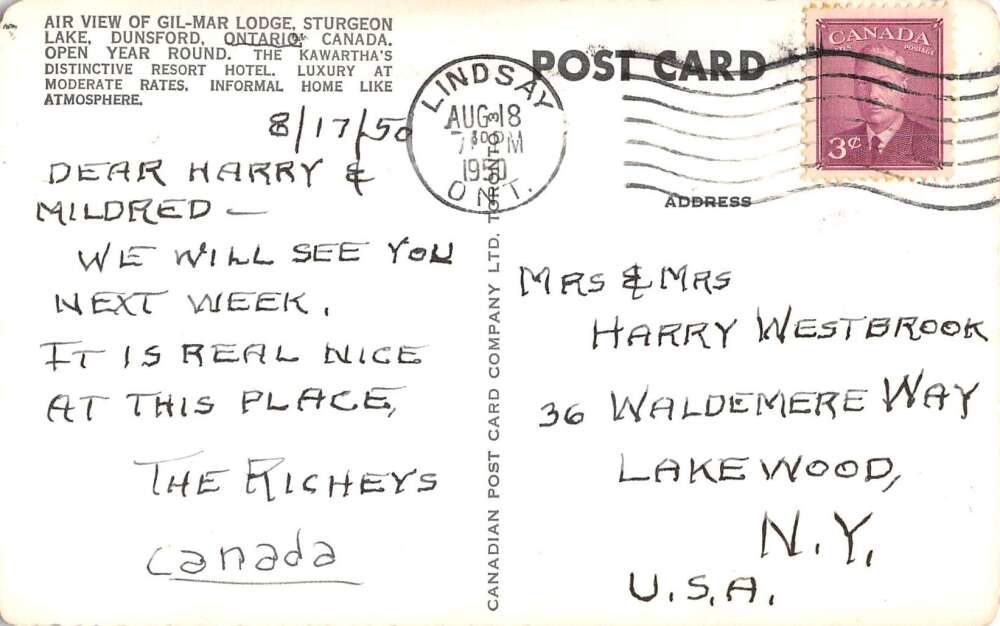 AIR VIEW OF GIL-MAR LODGE, STURGEON
LAKE, DUNSFORD, ONTARIO, CANADA.
OPEN YEAR ROUND. THE KAWARTHA'S
DISTINCTIVE RESORT HOTEL. LUXURY AT
MODERATE RATES. INFORMAL HOME LIKE
ATMOSPHERE.
8/17/50
DEAR HARRY &
MILDRED —
WE WILL SEE YOU
NEXT WEEK.
IT IS REAL NICE
AT THIS PLACE,
THE RICHEYS
Canada
CANADIAN POST CARD COMPANY LTD. TORONTO 3
LINDSAY
AUG 18
PM
1950
ONT.
POST CARD
CANADA
POSTES POSTAGE
3¢
ADDRESS
MRS & MRS
HARRY WESTBROOK
36 WALDEMERE WAY
LAKEWOOD,
N.Y.
U.S.A.